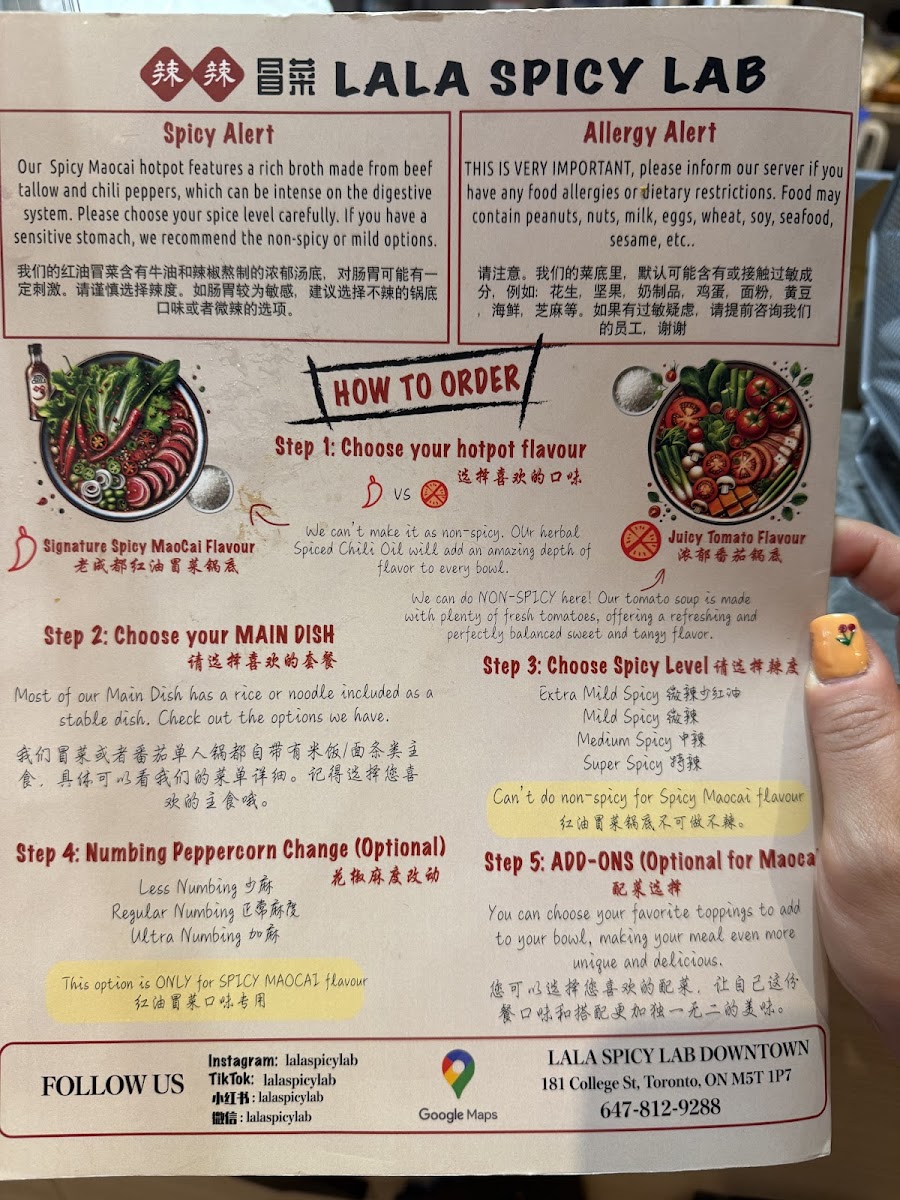 辣辣 冒菜 LALA SPICY LAB
Spicy Alert
Our Spicy Maocai hotpot features a rich broth made from beef
tallow and chili peppers, which can be intense on the digestive
system. Please choose your spice level carefully. If you have a
sensitive stomach, we recommend the non-spicy or mild options.
我们的红油冒菜含有牛油和辣椒熬制的浓郁汤底，对肠胃可能有一
定刺激。请谨慎选择辣度。如肠胃较为敏感，建议选择不辣的锅底
口味或者微辣的选项。
Allergy Alert
THIS IS VERY IMPORTANT, please inform our server if you
have any food allergies or dietary restrictions. Food may
contain peanuts, nuts, milk, eggs, wheat, soy, seafood,
sesame, etc..
请注意。我们的菜底里，默认可能含有或接触过敏成
分，例如：花生，坚果，奶制品，鸡蛋，面粉，黄豆
，海鲜，芝麻等。如果有过敏疑虑，请提前咨询我们
的员工，谢谢
HOW TO ORDER
Step 1: Choose your hotpot flavour
选择喜欢的口味
VS
Signature Spicy MaoCai Flavour
老成都红油冒菜锅底
We can't make it as non-spicy. OUr herbal
Spiced Chili Oil will add an amazing depth of
flavor to every bowl.
Juicy Tomato Flavour
浓郁番茄锅底
We can do NON-SPICY here! Our tomato soup is made
with plenty of fresh tomatoes, offering a refreshing and
perfectly balanced sweet and tangy flavor.
Step 2: Choose your MAIN DISH
请选择喜欢的套餐
Most of our Main Dish has a rice or noodle included as a
stable dish. Check out the options we have.
我们冒菜或者番茄单人锅都自带有米饭/面条类主
食，具体可以看我们的菜单详细。记得选择您喜
欢的主食哦。
Step 3: Choose Spicy Level 请选择辣度
Extra Mild Spicy 微辣少红油
Mild Spicy 微辣
Medium Spicy 中辣
Super Spicy 特辣
Can't do non-spicy for Spicy Maocai flavour
红油冒菜锅底不可做不辣。
Step 4: Numbing Peppercorn Change (Optional)
花椒麻度改动
Less Numbing 少麻
Regular Numbing 正常麻度
Ultra Numbing 加麻
This option is ONLY for SPICY MAOCAI flavour
红油冒菜口味专用
Step 5: ADD-ONS (Optional for Maoca
配菜选择
You can choose your favorite toppings to add
to your bowl, making your meal even more
unique and delicious.
您可以选择您喜欢的配菜，让自己这份
餐口味和搭配更加独一无二的美味。
FOLLOW US
Instagram: lalaspicylab
TikTok: lalaspicylab
小红书: lalaspicylab
微信: lalaspicylab
Google Maps
LALA SPICY LAB DOWNTOWN
181 College St, Toronto, ON M5T 1P7
647-812-9288